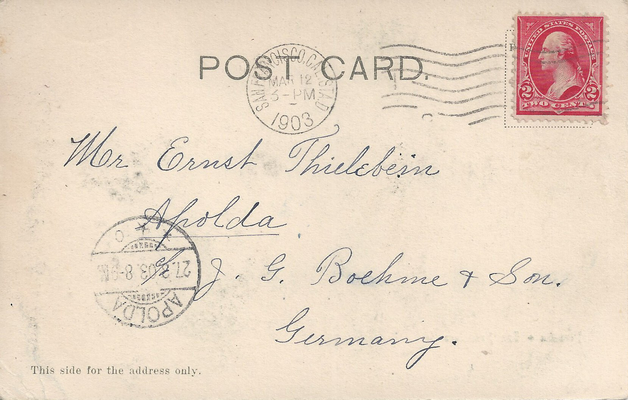 POST CARD.
SAN FRANCISCO, CAL. STA. D
MAR 12
3-PM
1903
UNITED STATES POSTAGE
2 2
TWO CENTS
Mr Ernst Thielebein
Apolda
c/o J. G. Boehme & Son.
Germany.
APOLDA
This side for the address only.